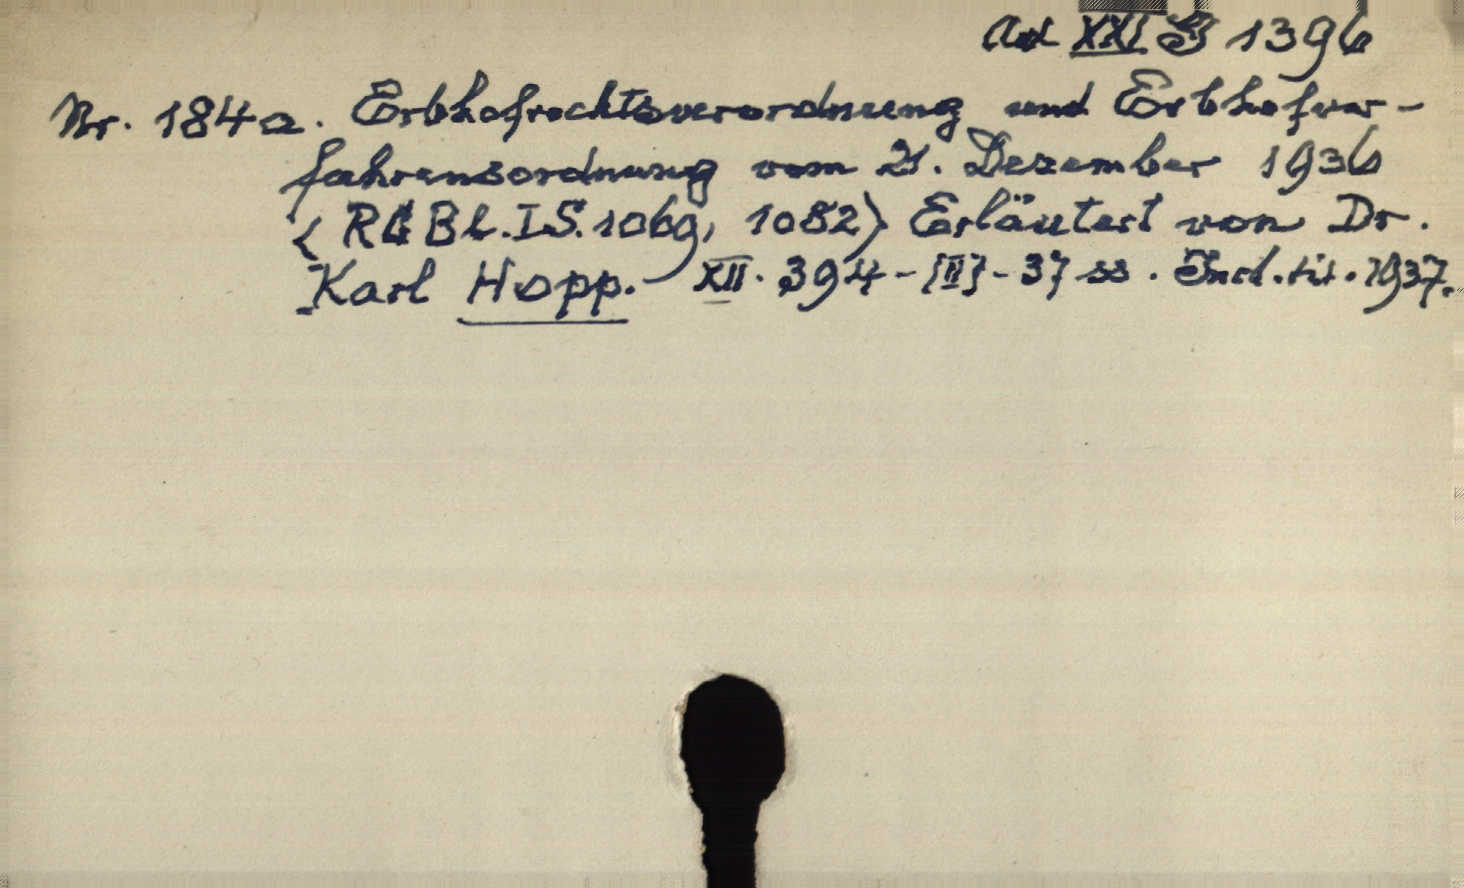 ad XXI B 1396
Nr. 184a. Erbhofrechtsverordnung und Erbhofver-
fahrensordnung vom 21. Dezember 1936
(RGBl. I S. 1069, 1082) Erläutert von Dr.
Karl Hopp. - XII. 394 - [II] - 37 ss. 1937.